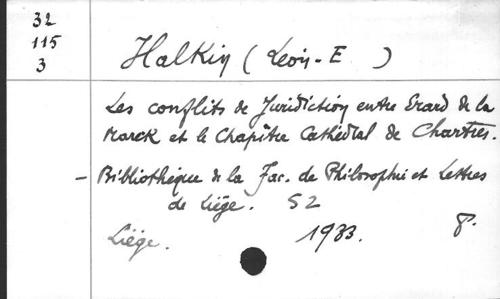 32
115
3
Halkin (Léon-E )
Les conflits de Juridiction entre Erard de la
Marck et le Chapitre Cathédral de Chartres.
- Bibliothèque de la Fac. de Philosophie et Lettres
de Liège. 52
Liège. 1933. 8°.